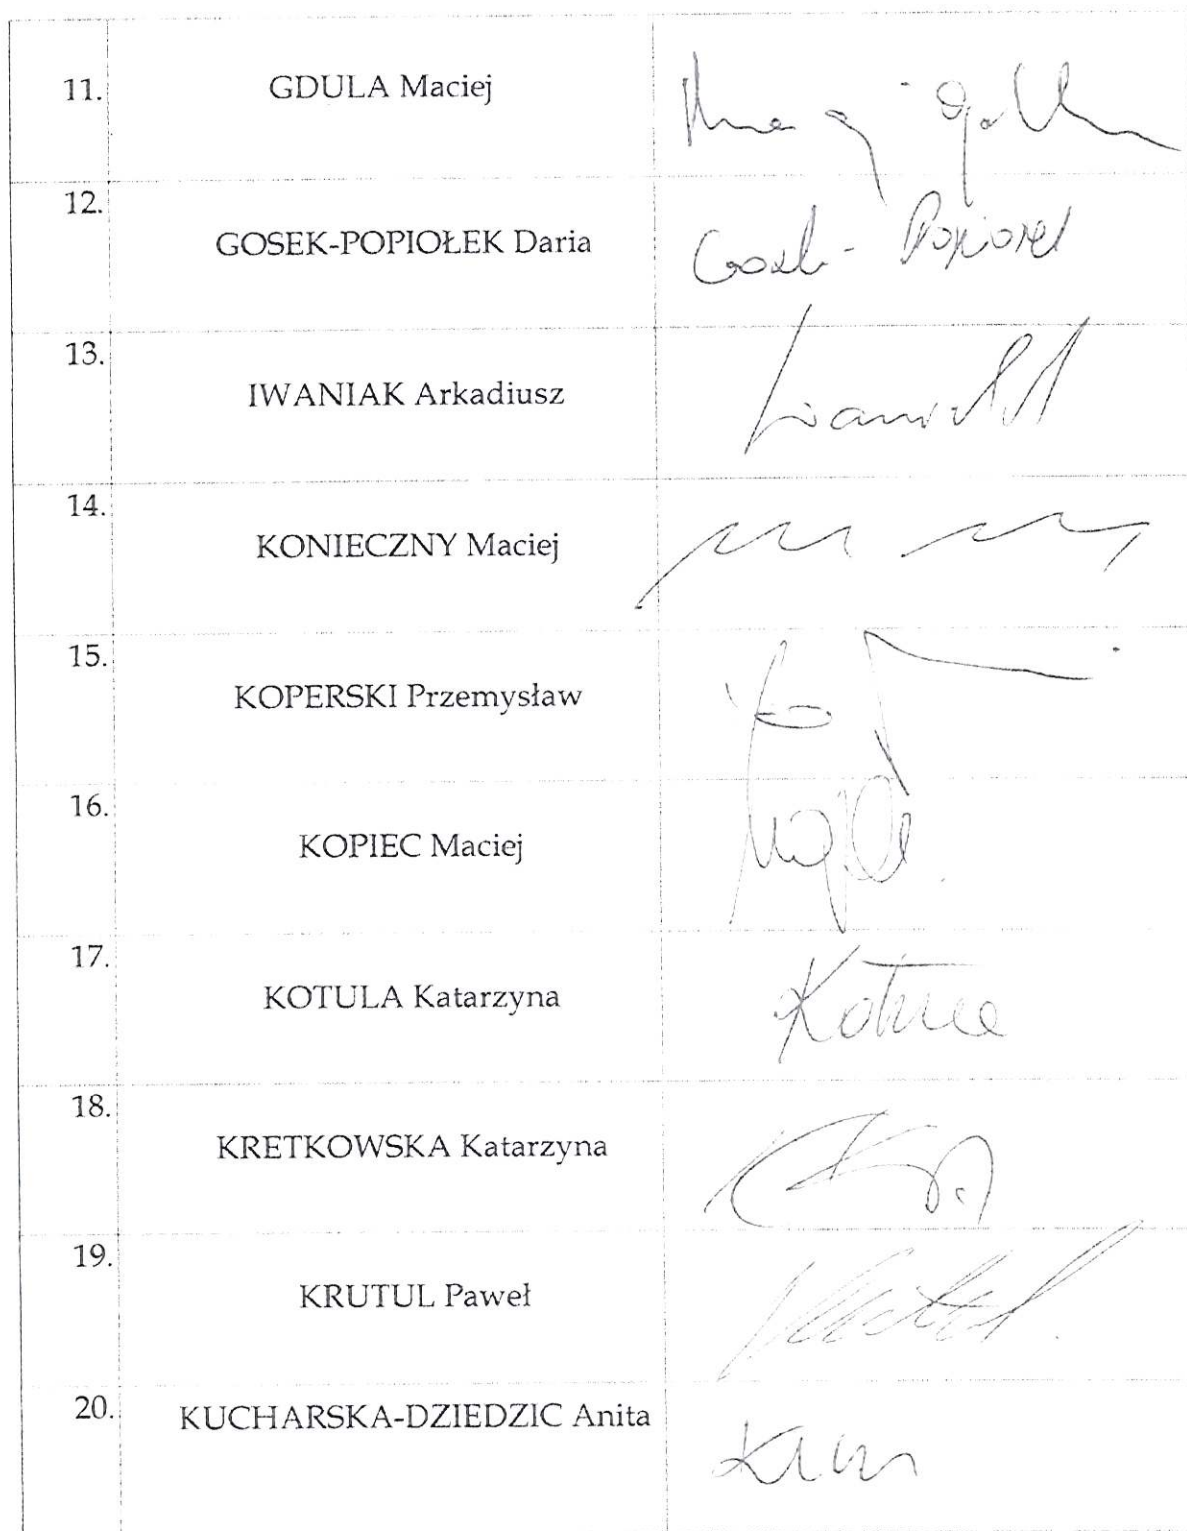 11. GDULA Maciej
12. GOSEK-POPIOŁEK Daria Gosek-Popiołek
13. IWANIAK Arkadiusz
14. KONIECZNY Maciej
15. KOPERSKI Przemysław
16. KOPIEC Maciej
17. KOTULA Katarzyna Kotula
18. KRETKOWSKA Katarzyna
19. KRUTUL Paweł
20. KUCHARSKA-DZIEDZIC Anita